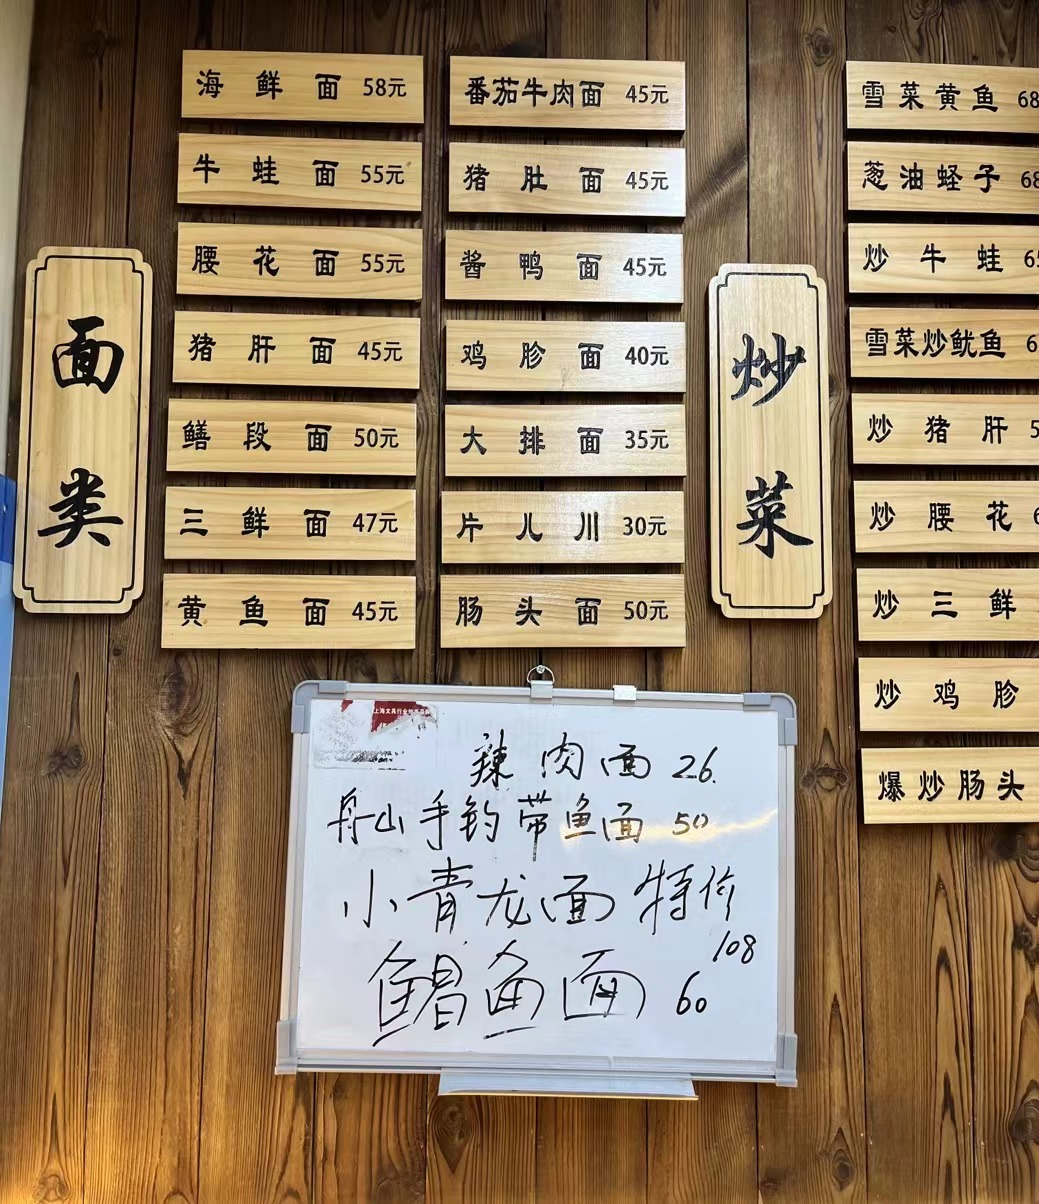 面类
海鲜面 58元
牛蛙面 55元
腰花面 55元
猪肝面 45元
鳝段面 50元
三鲜面 47元
黄鱼面 45元
番茄牛肉面 45元
猪肚面 45元
酱鸭面 45元
鸡胗面 40元
大排面 35元
片儿川 30元
肠头面 50元
炒菜
雪菜黄鱼 68
葱油蛏子 68
炒牛蛙
雪菜炒鱿鱼
炒猪肝
炒腰花
炒三鲜
炒鸡胗
爆炒肠头
辣肉面 26.
舟山手钓带鱼面 50
小青龙面 特价
108
鲳鱼面 60